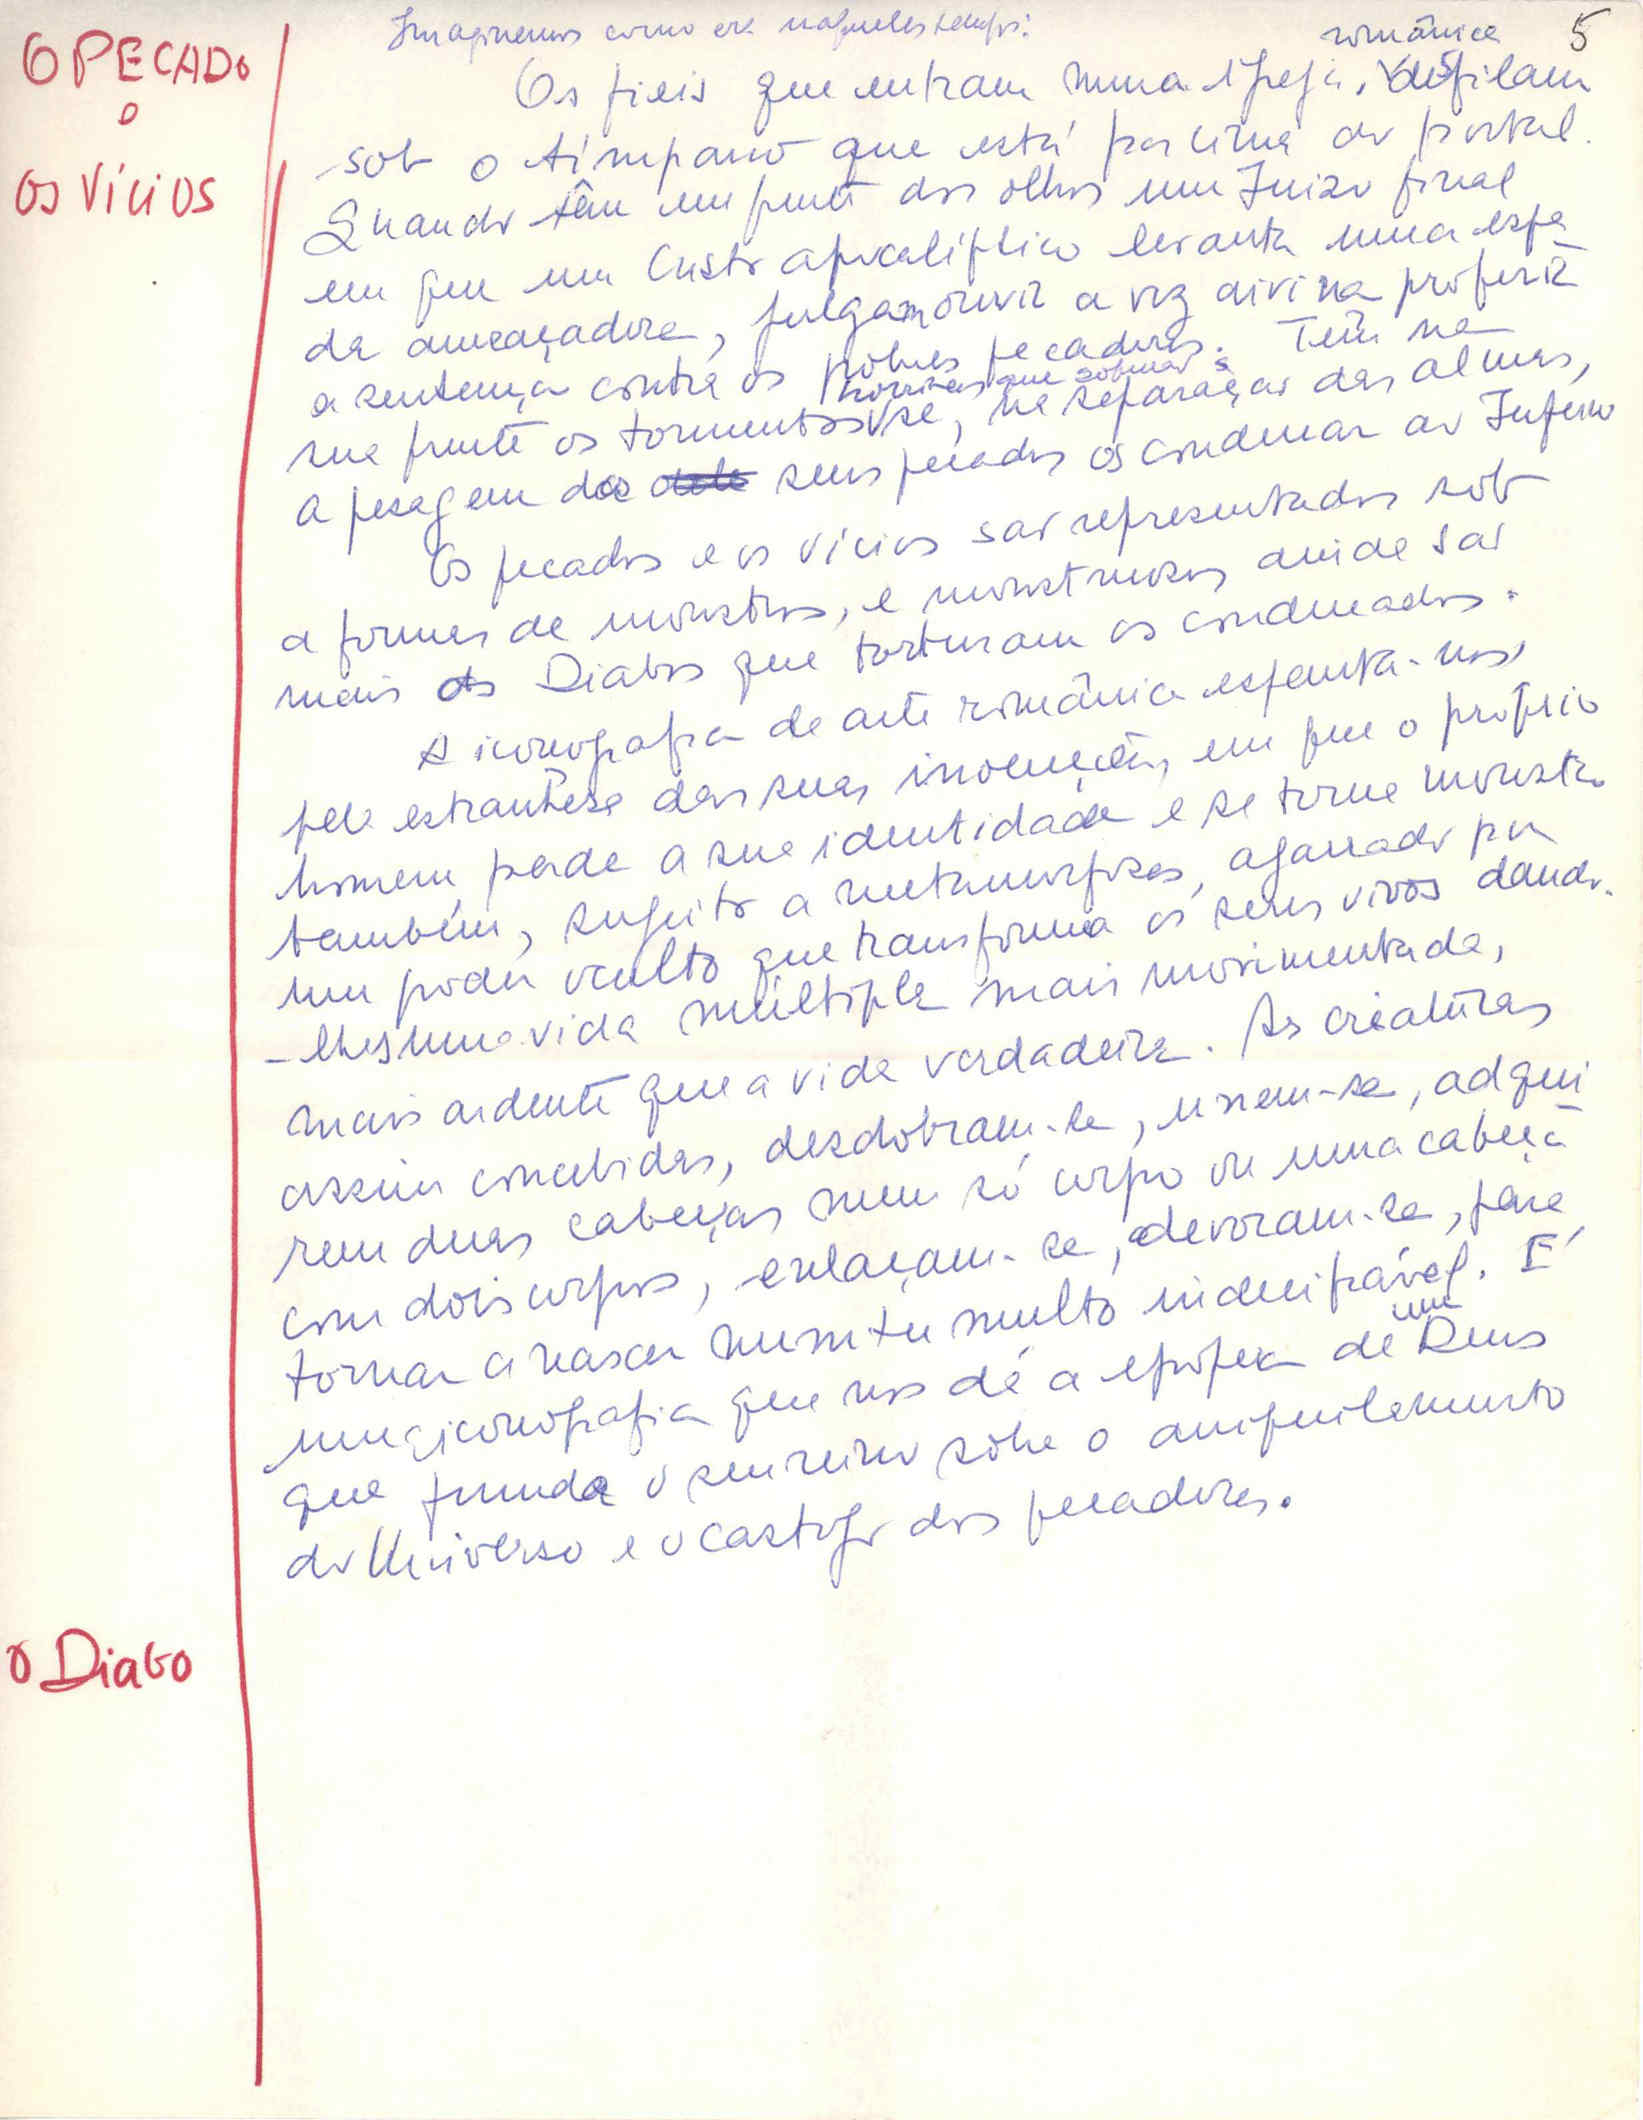 5
Imaginemos como era naqueles tempos:
O PECADO
o
OS VÍCIOS
românica
Os fieis que entram numa igreja, desfilam
sob o tímpano que está por cima do portal.
Quando têm em frente dos olhos um Juizo final
em que um Cristo apocalíptico levanta uma espa
da ameaçadora, julgam ouvir a voz divina proferir
a sentença contra os pobres pecadores. Têm na
horriveis que sofrerão
sua frente os tormentos se, na separação das almas,
a pesagem dos seus pecados os condenar ao Inferno
Os pecados e os vícios são representados sob
a forma de monstros, e monstruosos ainda são
mais os Diabos que torturam os condenados.
A iconografia da arte românica espanta-nos,
pela estranheza das suas invenções, em que o próprio
homem perde a sua identidade e se torna monstro
também, sujeito a metamorfoses, agarrado por
um poder oculto que transforma os seres vivos dando-
-lhes uma vida múltipla mais movimentada,
mais ardente que a vida verdadeira. As criaturas
assim concebidas, desdobram-se, unem-se, adqui
rem duas cabeças num só corpo ou uma cabeça
com dois corpos, enlaçam-se, devoram-se, para
tornar a nascer num tumulto indecifrável. É
uma iconografia que nos dá a epopeia de um Deus
que funda o seu reino sobre o aniquilamento
do Universo e o castigo dos pecadores.
o Diabo